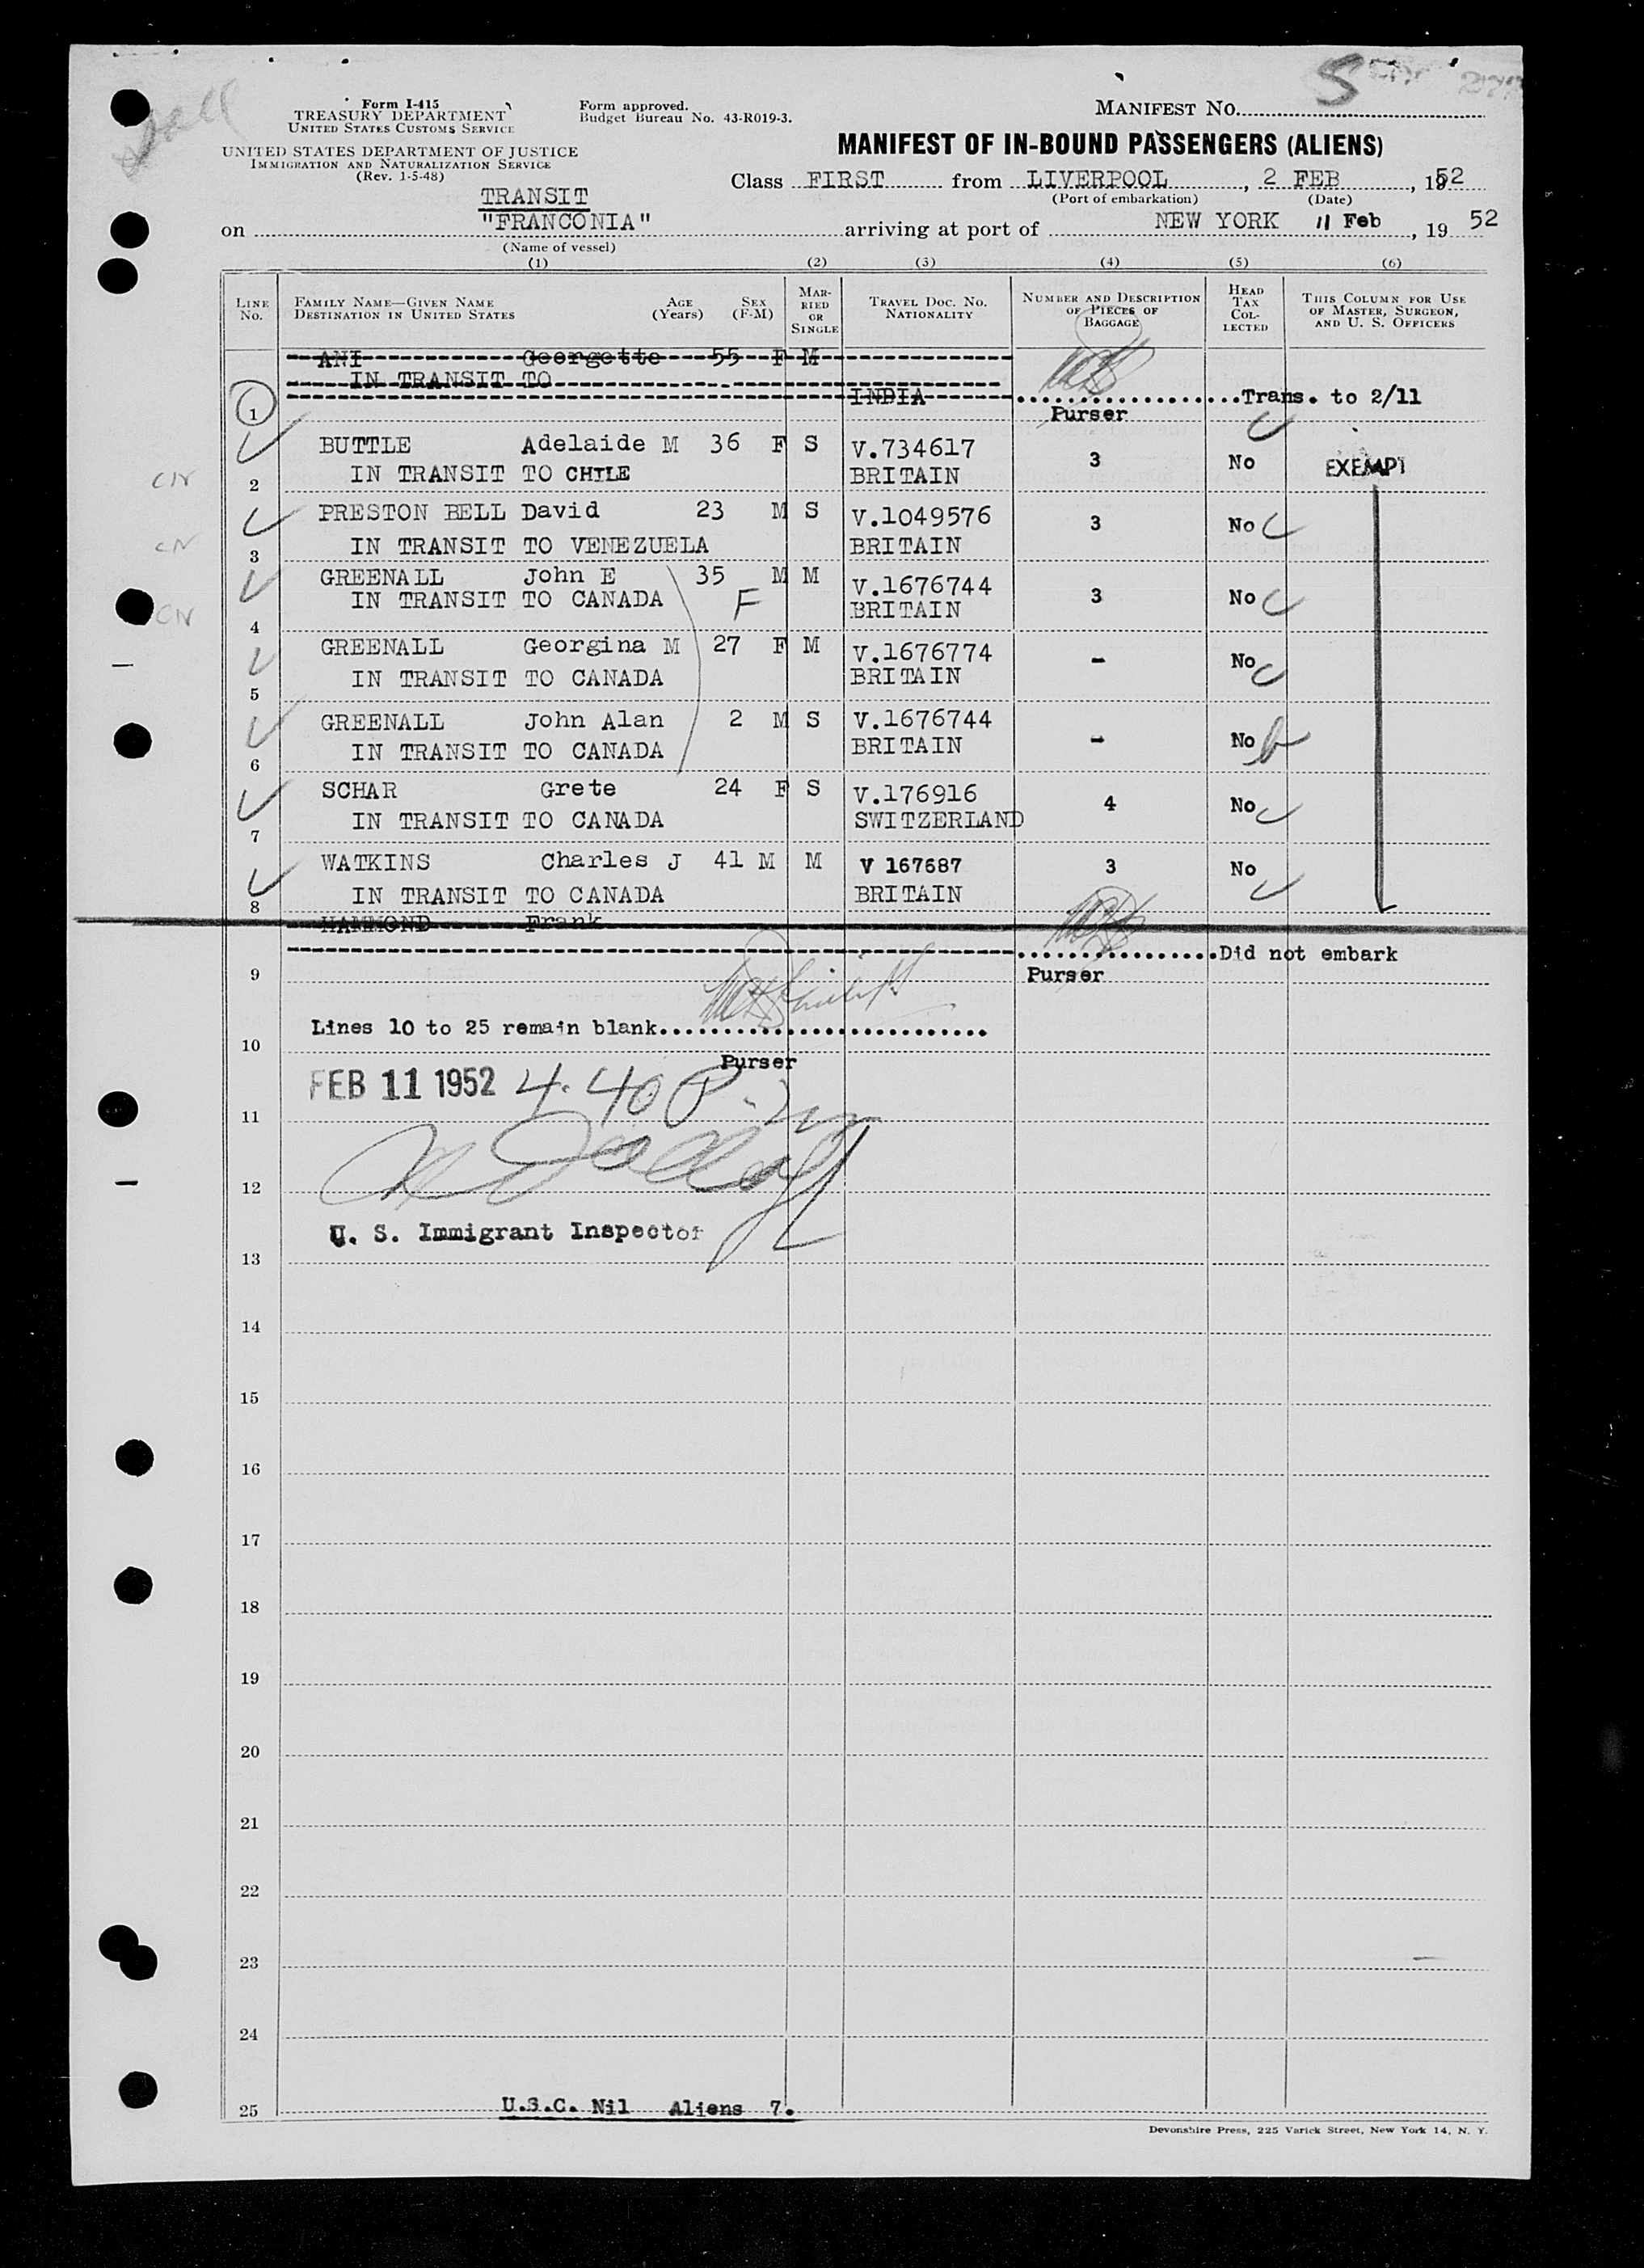 Form I-415
TREASURY DEPARTMENT
UNITED STATES CUSTOMS SERVICE
UNITED STATES DEPARTMENT OF JUSTICE
IMMIGRATION AND NATURALIZATION SERVICE
(Rev. 1-5-48)
Form approved.
Budget Bureau No. 43-R019-3.
MANIFEST NO. 5
MANIFEST OF IN-BOUND PASSENGERS (ALIENS)
Class FIRST from LIVERPOOL, 2 FEB, 1952
(Port of embarkation) (Date)
TRANSIT
on "FRANCONIA" arriving at port of NEW YORK 11 Feb, 19 52
(Name of vessel)
(1) (2) (3) (4) (5) (6)
LINE NO. FAMILY NAME—GIVEN NAME DESTINATION IN UNITED STATES AGE (Years) SEX (F-M) MARRIED OR SINGLE TRAVEL DOC. NO. NATIONALITY NUMBER AND DESCRIPTION OF PIECES OF BAGGAGE HEAD TAX COLLECTED THIS COLUMN FOR USE OF MASTER, SURGEON, AND U. S. OFFICERS
ANI Georgette 55 F M
IN TRANSIT TO
1 INDIA Trans. to 2/11
Purser
BUTTLE Adelaide M 36 F S V.734617 3 No EXEMPT
CN 2 IN TRANSIT TO CHILE BRITAIN
PRESTON BELL David 23 M S V.1049576 3 No
CN 3 IN TRANSIT TO VENEZUELA BRITAIN
GREENALL John E 35 M M V.1676744 3 No
CN 4 IN TRANSIT TO CANADA F BRITAIN
GREENALL Georgina M 27 F M V.1676774 - No
5 IN TRANSIT TO CANADA BRITAIN
GREENALL John Alan 2 M S V.1676744 - No
6 IN TRANSIT TO CANADA BRITAIN
SCHAR Grete 24 F S V.176916 4 No
7 IN TRANSIT TO CANADA SWITZERLAND
WATKINS Charles J 41 M M V 167687 3 No
8 IN TRANSIT TO CANADA BRITAIN
HAMMOND Frank
Did not embark
9 Purser
Lines 10 to 25 remain blank
10
Purser
FEB 11 1952 4.40 P.m
11
12
U. S. Immigrant Inspector
13
14
15
16
17
18
19
20
21
22
23
24
25 U.S.C. Nil Aliens 7.
Devonshire Press, 225 Varick Street, New York 14, N. Y.